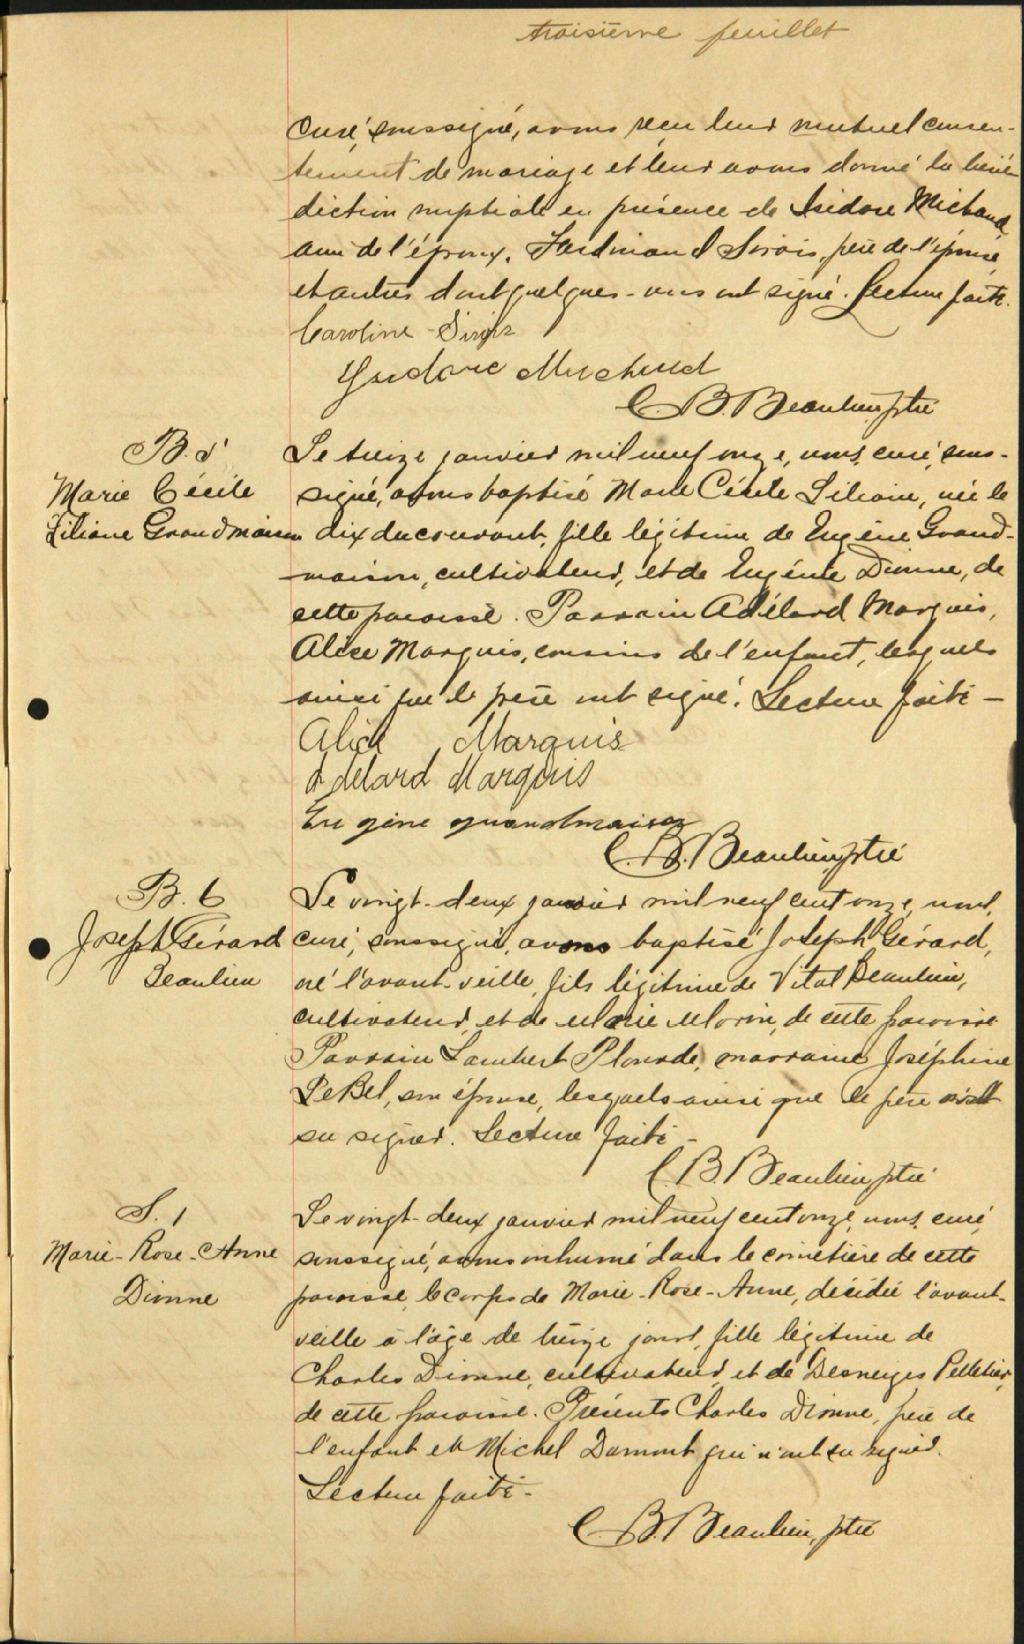 troisième feuillet
curé, soussigné, avons reçu leur mutuel consen-
tement de mariage et leur avons donné la béné-
diction nuptiale en présence de Isidore Michaud
ami de l'époux, Ferdinand Sirois, père de l'épouse,
et autres dont quelques-uns ont signé. Lecture faite.
Caroline Sirois
Ysidore Michaud
C. B. Beaulieu, ptre
B. 5
Marie Cécile
Liliane Grandmaison
Le treize janvier mil neuf onze, nous, curé, sous-
signé, avons baptisé Marie Cécile Liliane, née le
dix du courant, fille légitime de Eugène Grand-
maison, cultivateur, et de Eugénie Dionne, de
cette paroisse. Parrain Adélard Marquis,
Alice Marquis, cousins de l'enfant, lesquels
ainsi que le père ont signé. Lecture faite -
Alice Marquis
Adelard Marquis
Eugène grandmaison
C. B. Beaulieu, ptre
B. 6
Joseph Gérard
Beaulieu
Le vingt-deux janvier mil neuf cent onze, nous,
curé, soussigné, avons baptisé Joseph Gérard,
né l'avant-veille, fils légitime de Vital Beaulieu,
cultivateur, et de Marie Morin, de cette paroisse.
Parrain Lambert Plourde, marraine Joséphine
LeBel, son épouse, lesquels ainsi que le père
su signer. Lecture faite -
C. B. Beaulieu ptre
S. 1
Marie-Rose-Anne
Dionne
Le vingt-deux janvier mil neuf cent onze, nous, curé,
soussigné, avons inhumé dans le cimetière de cette
paroisse, le corps de Marie-Rose-Anne, décédée l'avant-
veille à l'âge de treize jours, fille légitime de
Charles Dionne, cultivateur, et de Desneiges Pelletier,
de cette paroisse. Présents Charles Dionne, père de
l'enfant et Michel Dumont qui n'ont su signer.
Lecture faite -
C. B. Beaulieu, ptre